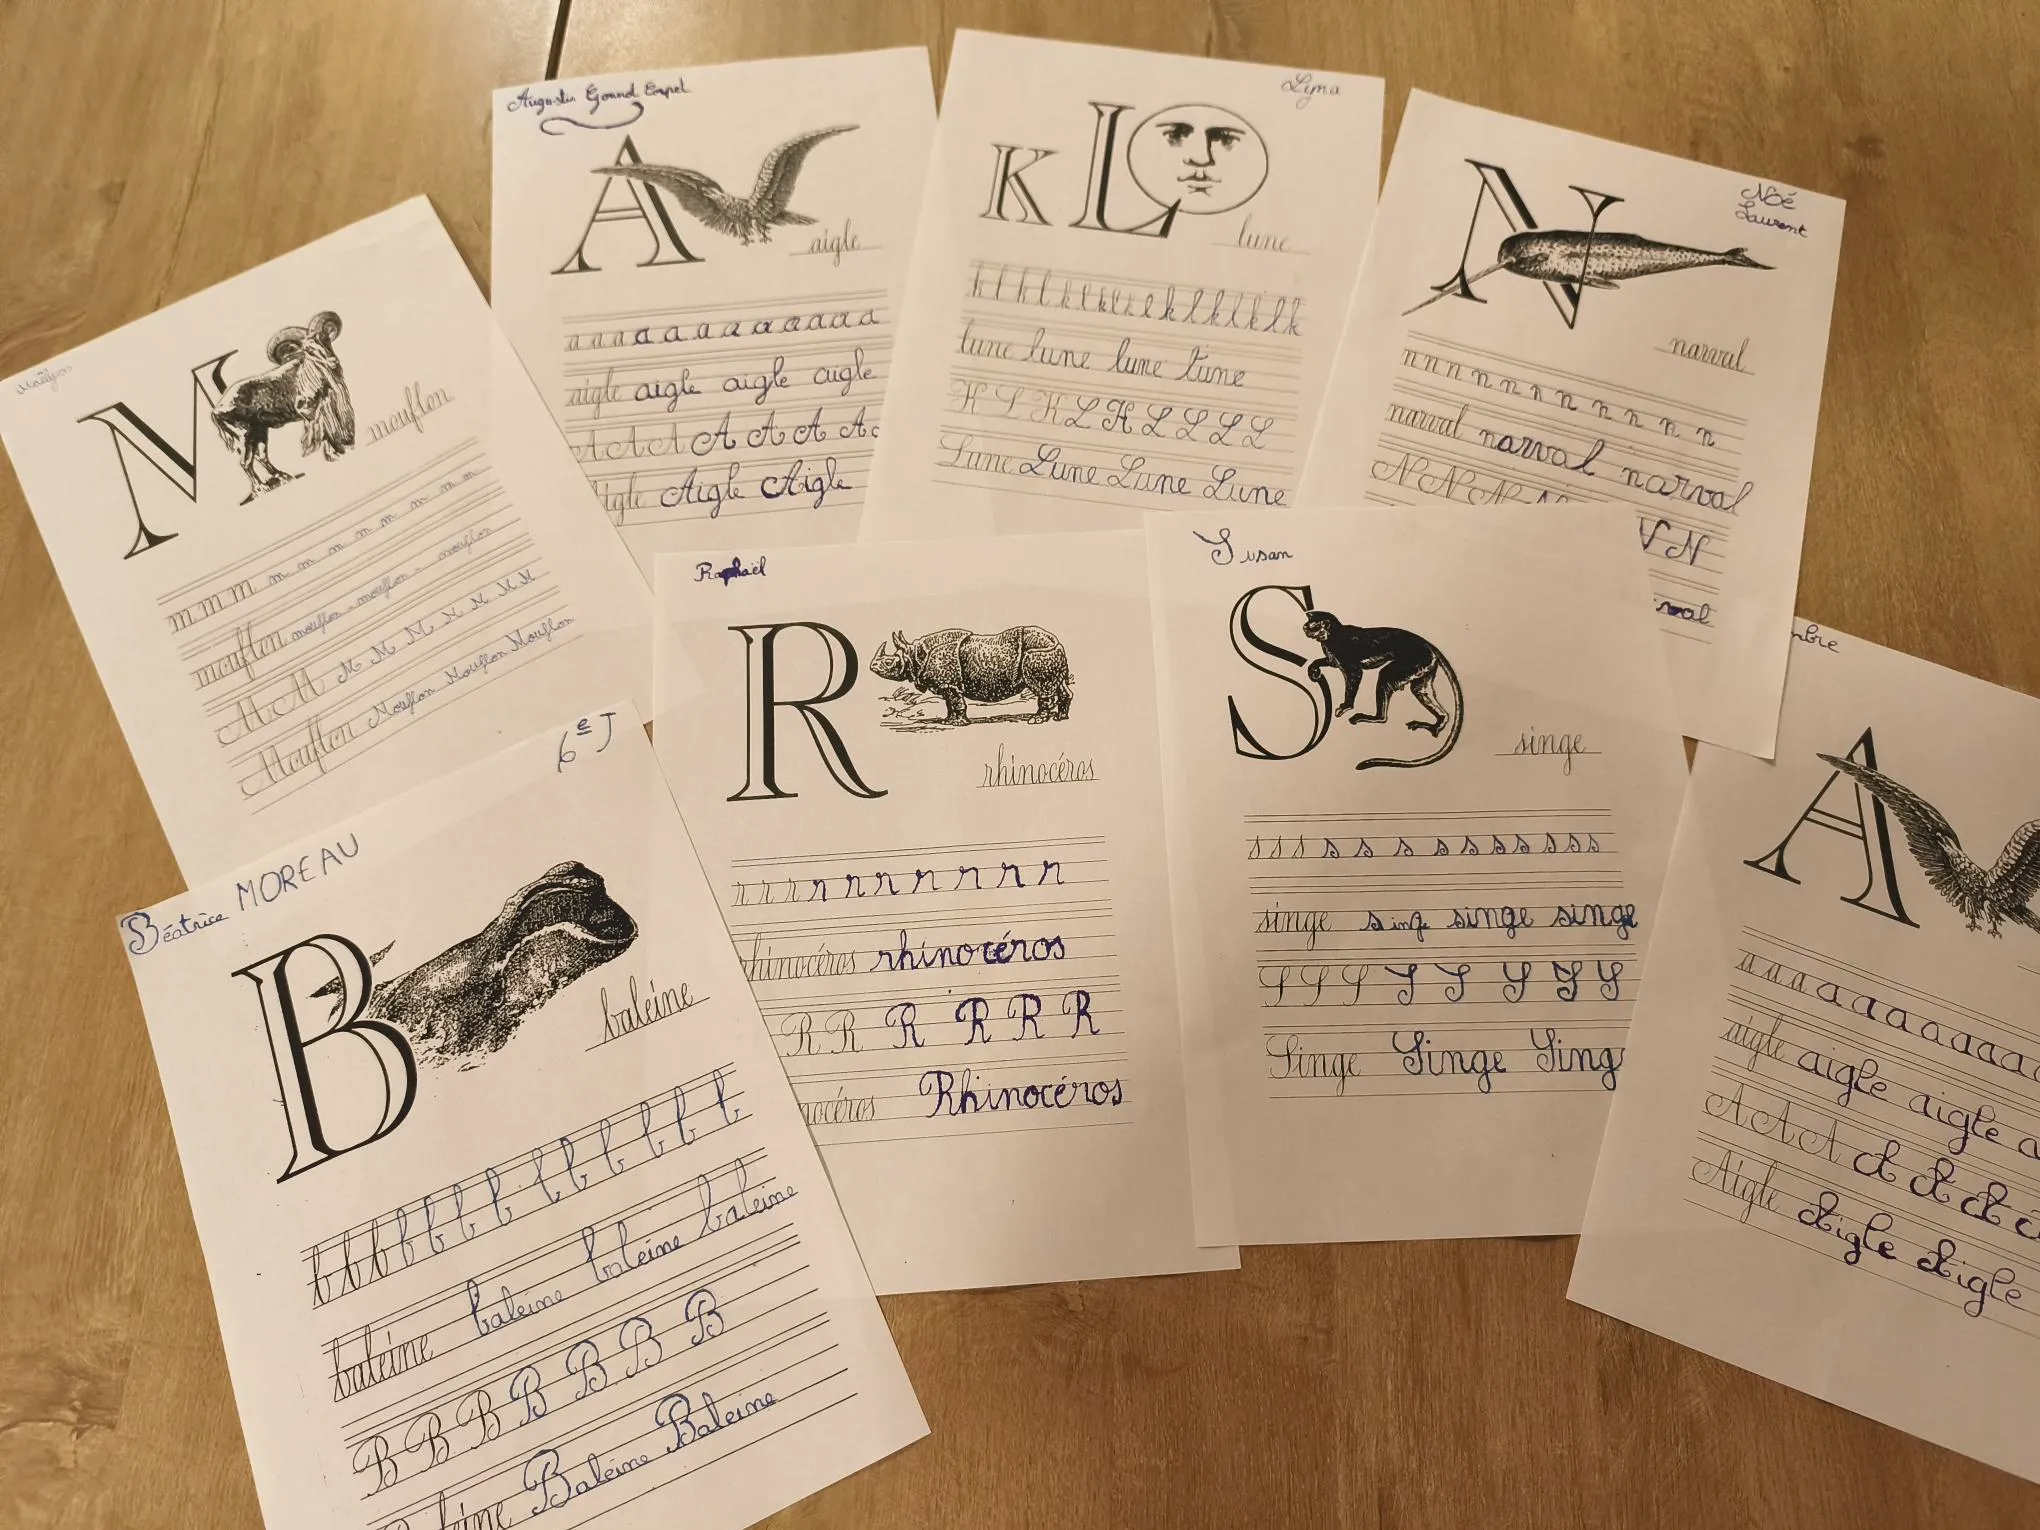 Maëlyss
M
mouflon
m m m m m m m m m m m
mouflon mouflon mouflon mouflon
M M M M M M M M M
Mouflon Mouflon Mouflon Mouflon
Augustin
A
aigle
a a a a a a a a a a a a a
aigle aigle aigle aigle
A A A A A A A
Aigle Aigle Aigle
Lyna
K L
lune
k l k l k l k l k l k l k l k l k
lune lune lune lune
K L K L K L L L L
Lune Lune Lune Lune
Noé
Laurent
N
narval
n n n n n n n n n n n n
narval narval narval
N N N N
N N
Béatrice MOREAU
6e J
B
baleine
b b b b b b b b b b b b b
baleine baleine baleine baleine
B B B B B B B
Baleine Baleine
Raphaël
R
rhinocéros
r r r r r r r r r r r
rhinocéros rhinocéros
R R R R R R
Rhinocéros
Susan
S
singe
s s s s s s s s s s s s s
singe singe singe singe
S S S S S S S S
Singe Singe Sing
A
a a a a a a a a a a a
aigle aigle aigle a
A A A A A A
Aigle Aigle Aigle